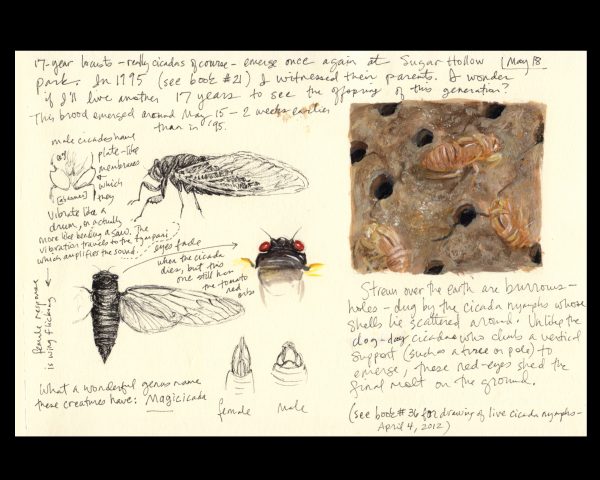 17-year locusts - really cicadas of course - emerge once again at Sugar Hollow | May 18
park. In 1995 (see book #21) I witnessed their parents. I wonder
if I'll live another 17 years to see the offspring of this generation?
This brood emerged around May 15 - 2 weeks earlier
than in '95.
male cicadas have
plate-like
membranes
which
they
vibrate like a
drum, or actually
more like bending a saw. The
vibration travels to the tympani
which amplifies the sound.
female response
is wing flicking
eyes fade
when the cicada
dies, but this
one still has
the tomato
red orbs
What a wonderful genus name
these creatures have: Magicicada
female
male
Strewn over the earth are burrows -
holes - dug by the cicada nymphs whose
shells lie scattered around. Unlike the
dog-day cicadas who climb a vertical
support (such as a tree or pole) to
emerge, these red-eyes shed the
final molt on the ground.
(see book #36 for drawing of live cicada nymphs -
April 4, 2012)